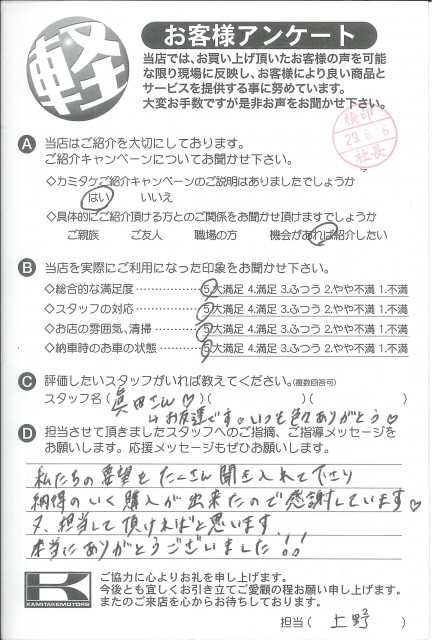 軽
お客様アンケート
当店では、お買い上げ頂いたお客様の声を可能
な限り現場に反映し、お客様により良い商品と
サービスを提供する事に努めています。
大変お手数ですが是非お声をお聞かせ下さい。
検印
29.6.6
社長
A 当店はご紹介を大切にしております。
ご紹介キャンペーンについてお聞かせ下さい。
◇カミタケご紹介キャンペーンのご説明はありましたでしょうか
はい いいえ
◇具体的にご紹介頂ける方とのご関係をお聞かせ頂けますでしょうか
ご親族 ご友人 職場の方 機会があれば紹介したい
B 当店を実際にご利用になった印象をお聞かせ下さい。
◇総合的な満足度 ……………… 5.大満足 4.満足 3.ふつう 2.やや不満 1.不満
◇スタッフの対応 ……………… 5.大満足 4.満足 3.ふつう 2.やや不満 1.不満
◇お店の雰囲気、清掃 ………… 5.大満足 4.満足 3.ふつう 2.やや不満 1.不満
◇納車時のお車の状態 ………… 5.大満足 4.満足 3.ふつう 2.やや不満 1.不満
C 評価したいスタッフがいれば教えてください。(複数回答可)
スタッフ名 ( 眞田さん♡ )( )( )
↳お友達です。いつも色々ありがとう♡
D 担当させて頂きましたスタッフへのご指摘、ご指導メッセージを
お願いします。応援メッセージもぜひお願いします。
私たちの要望をたくさん聞き入れて下さり
納得のいく購入が出来たので感謝しています♡
又、担当して頂ければと思います。
本当にありがとうございました!!
K
KAMITAKEMOTORS
ご協力に心よりお礼を申し上げます。
今後とも宜しくお引き立てご愛顧の程お願い申し上げます。
またのご来店を心からお待ちしております。
担当 ( 上野 )